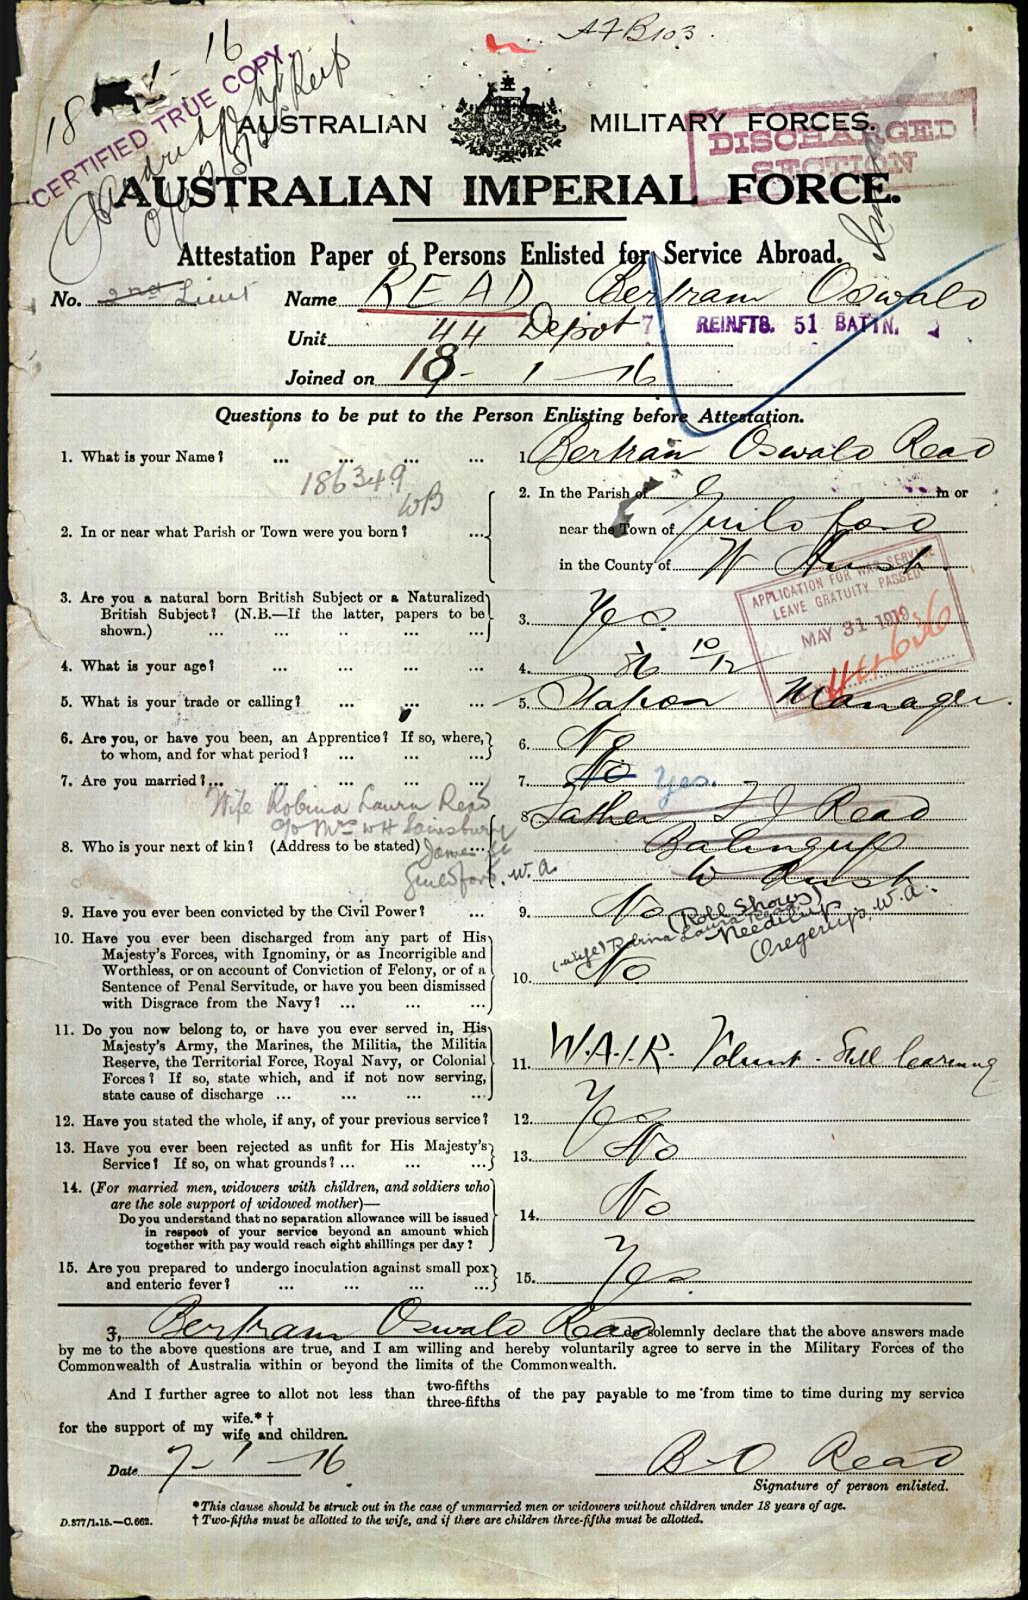 A F B 103.
18 1 - 16
CERTIFIED TRUE COPY.
AUSTRALIAN MILITARY FORCES.
DISCHARGED
SECTION
AUSTRALIAN IMPERIAL FORCE.
Attestation Paper of Persons Enlisted for Service Abroad.
No. 2nd Lieut Name READ Bertram Oswald
Unit 44 Depot 7 REINFTS. 51 BATTN.
Joined on 18 - 1 - 16
Questions to be put to the Person Enlisting before Attestation.
1. What is your Name? ... ... ... ... 1. Bertram Oswald Read
186349
WB
2. In or near what Parish or Town were you born? ...
2. In the Parish of in or
near the Town of Guildford
in the County of W Aust.
3. Are you a natural born British Subject or a Naturalized
British Subject? (N.B.—If the latter, papers to be
shown.) ... ... ... ... ...
3. Yes.
APPLICATION FOR WAR SERVICE
LEAVE GRATUITY PASSED
MAY 31 1919
4. What is your age? ... ... ... ... 4. 10/12
5. What is your trade or calling? ... ... ... 5. Station Manager.
6. Are you, or have you been, an Apprentice? If so, where,
to whom, and for what period? ... ... ...
6. No
7. Are you married?... ... ... ... ... 7. No Yes.
Wife Robina Laura Read
c/o Mrs W H Sainsbury
James St
Guildford. W. A.
8. Who is your next of kin? (Address to be stated) ...
8. Father F J Read
Balingup
W Aust
9. Have you ever been convicted by the Civil Power? ... 9. No
(Roll Shows)
(wife) Robina Laura Read
Needilup
W. A.
10. Have you ever been discharged from any part of His
Majesty's Forces, with Ignominy, or as Incorrigible and
Worthless, or on account of Conviction of Felony, or of a
Sentence of Penal Servitude, or have you been dismissed
with Disgrace from the Navy? ... ... ...
10. No.
11. Do you now belong to, or have you ever served in, His
Majesty's Army, the Marines, the Militia, the Militia
Reserve, the Territorial Force, Royal Navy, or Colonial
Forces? If so, state which, and if not now serving,
state cause of discharge ... ... ... ...
11. W.A.I.R. Volunt. Still
12. Have you stated the whole, if any, of your previous service? 12. Yes
13. Have you ever been rejected as unfit for His Majesty's
Service? If so, on what grounds? ... ... ...
13. No
14. (For married men, widowers with children, and soldiers who
are the sole support of widowed mother)—
Do you understand that no separation allowance will be issued
in respect of your service beyond an amount which
together with pay would reach eight shillings per day?
14. No
15. Are you prepared to undergo inoculation against small pox
and enteric fever? ... ... ... ...
15. Yes
I, Bertram Oswald Read do solemnly declare that the above answers made
by me to the above questions are true, and I am willing and hereby voluntarily agree to serve in the Military Forces of the
Commonwealth of Australia within or beyond the limits of the Commonwealth.
And I further agree to allot not less than two-fifths three-fifths of the pay payable to me from time to time during my service
for the support of my wife.* † wife and children.
Date 7 - 1 - 16 B O Read
Signature of person enlisted.
* This clause should be struck out in the case of unmarried men or widowers without children under 18 years of age.
D.377/1.15.—C.662. † Two-fifths must be allotted to the wife, and if there are children three-fifths must be allotted.